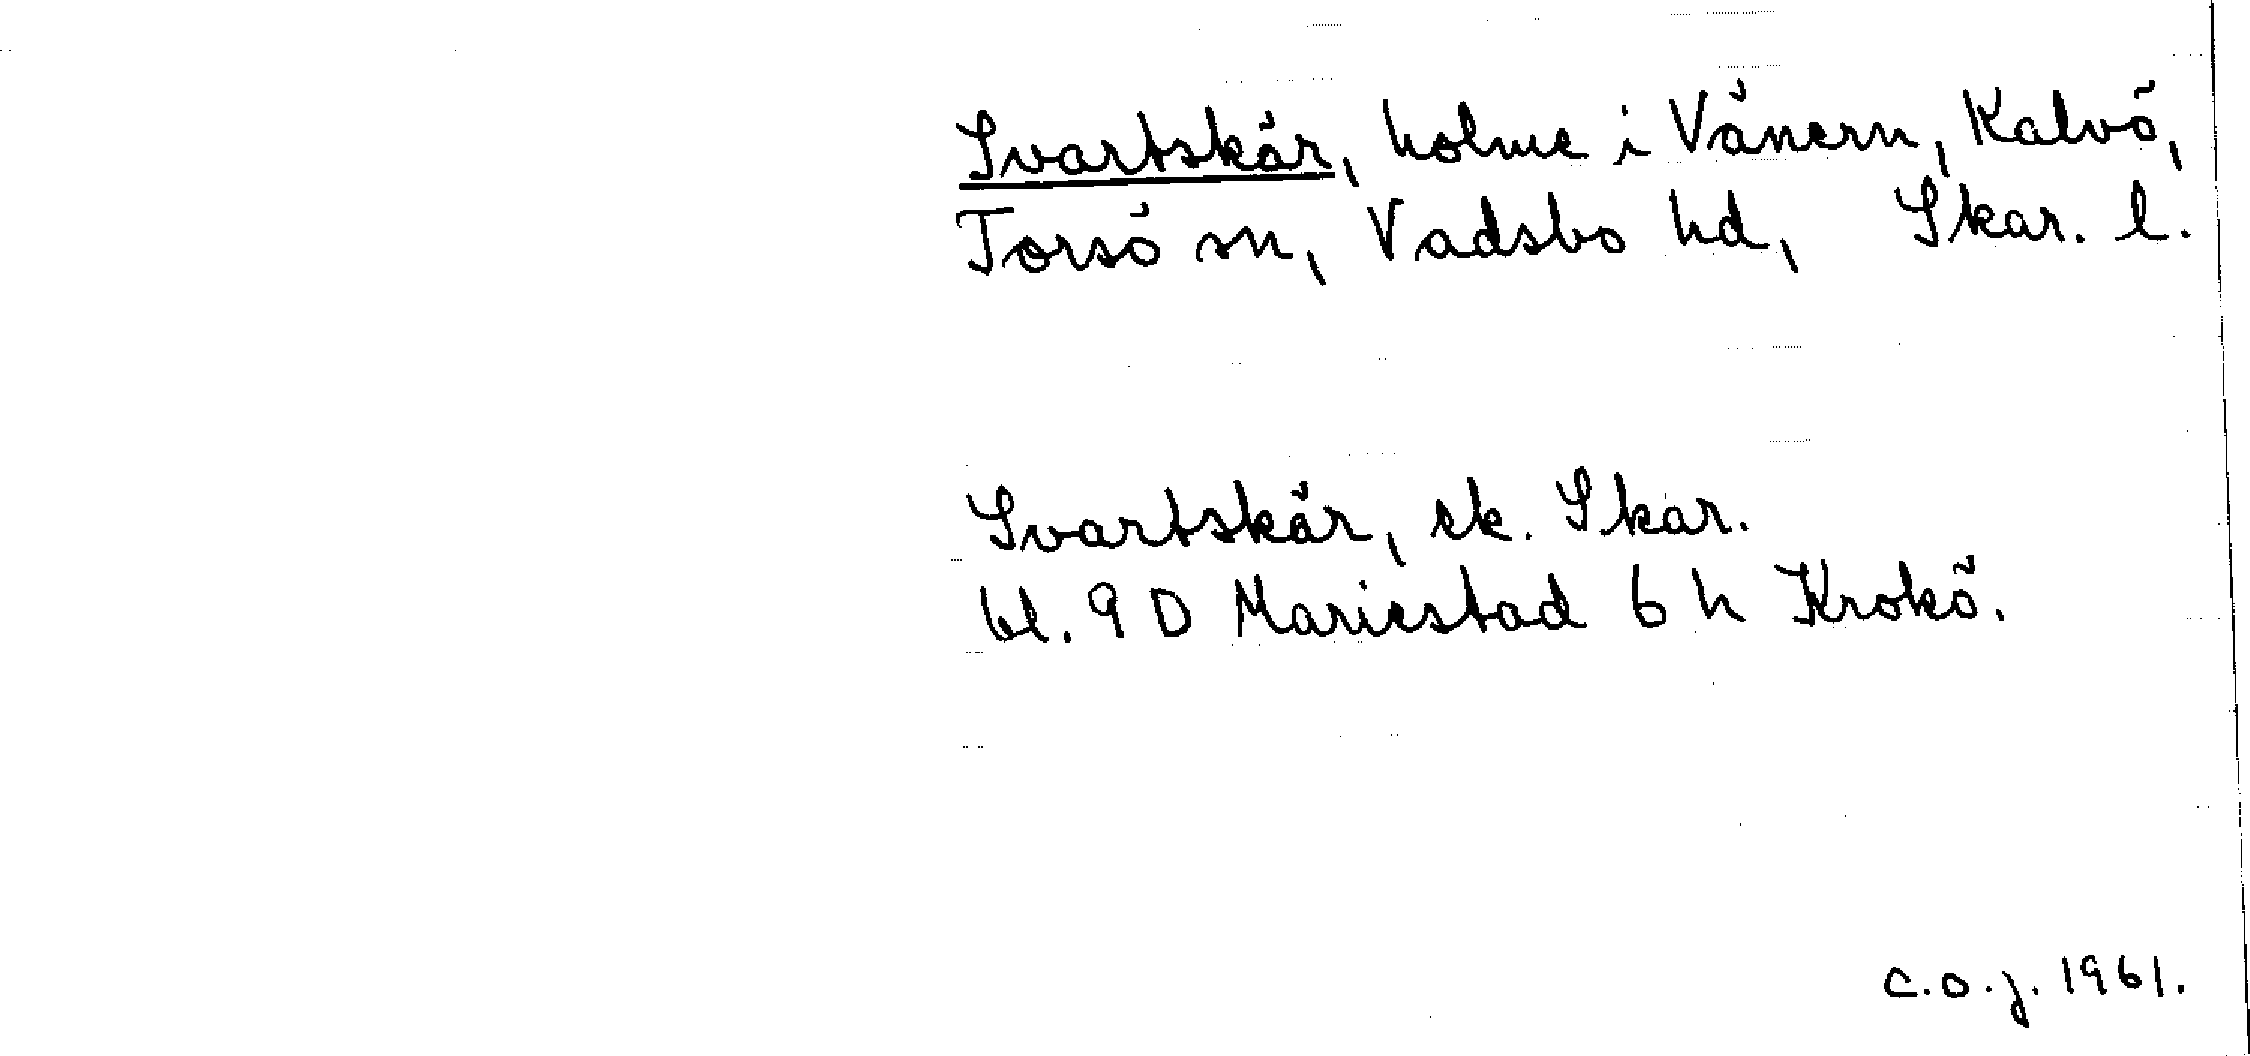 Svartskär, holme i Vänern, Kalvö,
Torsö sn, Vadsbo hd, Skar. l.
Svartskär, ek. Skar.
bl. 9 D Mariestad 6 h Krokö.
C.O.J. 1961.